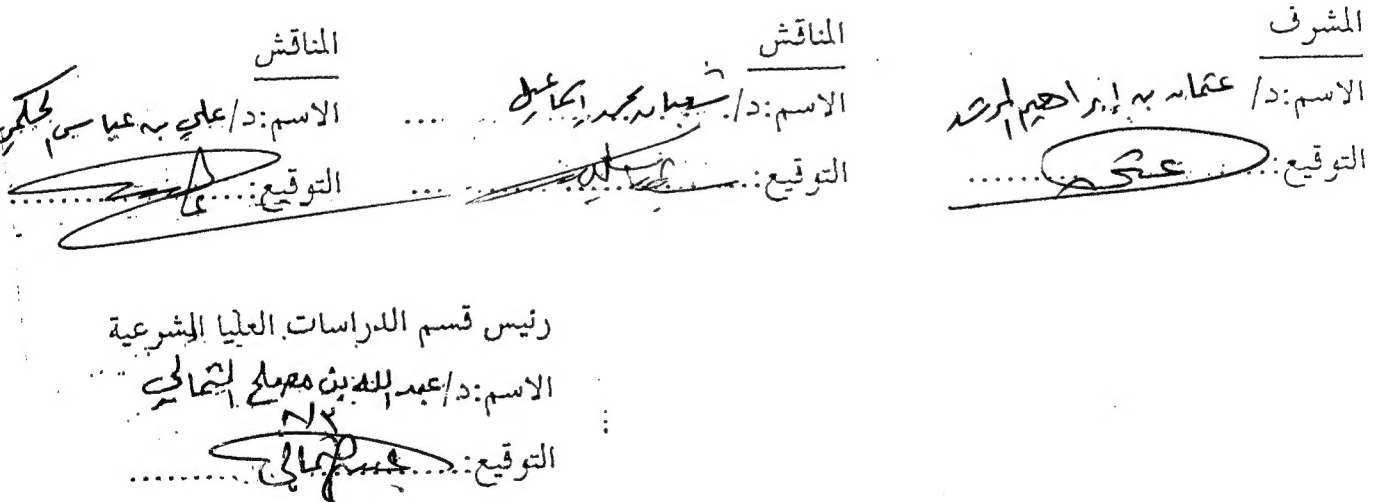 المشرف
الاسم:د/ عثمان بن إبراهيم المرشد
التوقيع:
المناقش
الاسم:د/ شعبان محمد إسماعيل
التوقيع:
المناقش
الاسم:د/ علي بن عباس الحكمي
التوقيع:
رئيس قسم الدراسات العليا الشرعية
الاسم:د/ عبد الله بن مصلح الثمالي
التوقيع: